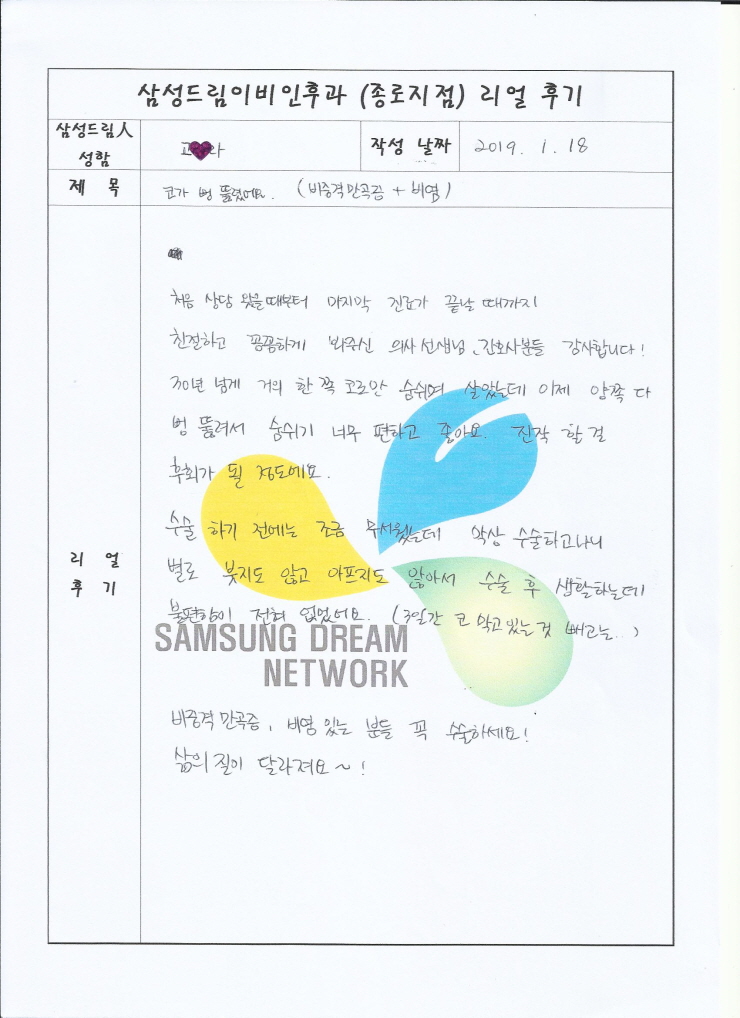 삼성드림이비인후과 (종로지점) 리얼 후기
삼성드림人 성함
고♥라
작성 날짜
2019. 1. 18
제 목
코가 벙 뚫렸어요. (비중격만곡증 + 비염)
리 얼 후 기
처음 상담 왔을때부터 마지막 진료가 끝날 때까지
친절하고 꼼꼼하게 봐주신 의사선생님, 간호사분들 감사합니다!
30년 넘게 거의 한 쪽 코로만 숨쉬며 살았는데 이제 양쪽 다
벙 뚫려서 숨쉬기 너무 편하고 좋아요. 진작 할 걸
후회가 될 정도에요.
수술 하기 전에는 조금 무서웠는데 막상 수술하고나니
별로 붓지도 않고 아프지도 않아서 수술 후 생활하는데
불편함이 전혀 없었어요. (3일간 코 막고 있는 것 빼고는..)
SAMSUNG DREAM
NETWORK
비중격 만곡증, 비염 있는 분들 꼭 수술하세요!
삶의 질이 달라져요~!